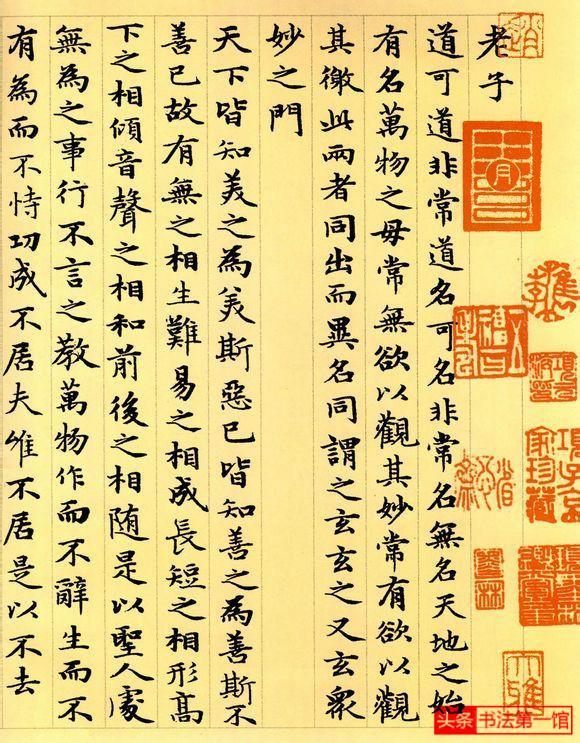 老子
道可道非常道名可名非常名無名天地之始
有名萬物之母常無欲以觀其妙常有欲以觀
其徼此兩者同出而異名同謂之玄玄之又玄眾
妙之門
天下皆知美之為美斯惡已皆知善之為善斯不
善已故有無之相生難易之相成長短之相形高
下之相傾音聲之相和前後之相随是以聖人處
無為之事行不言之教萬物作而不辭生而不
有為而不恃功成不居夫唯不居是以不去
項子京家珍藏
墨林
头条 书法第一馆